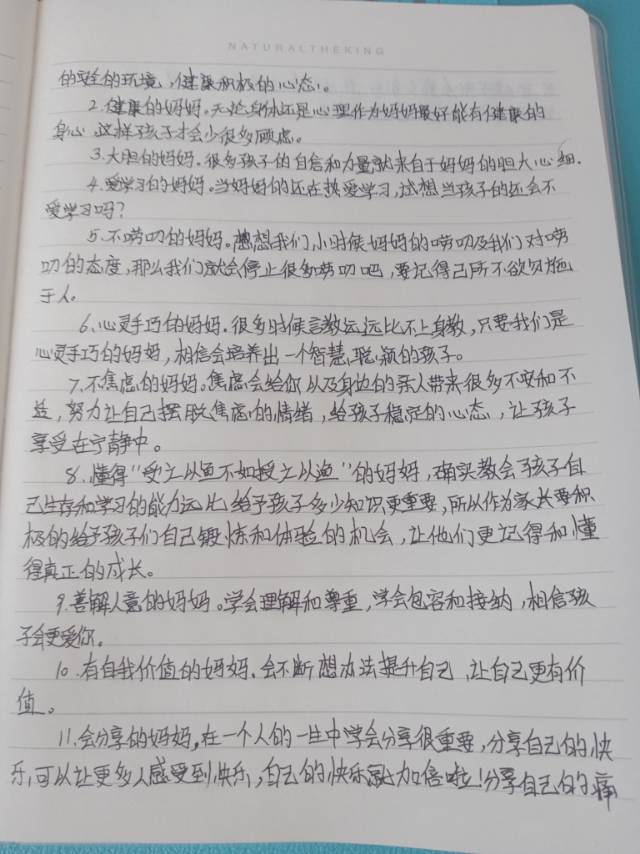 NATURALTHEKING
的安全的环境,健康积极的心态。
2.健康的妈妈。无论身体还是心理作为妈妈最好能有健康的
身心,这样孩子才会少很多顾虑。
3.大胆的妈妈。很多孩子的自信和力量就来自于妈妈的胆大心细.
4.爱学习的妈妈。当妈妈的还在热爱学习,试想当孩子的还会不
爱学习吗?
5.不唠叨的妈妈。想想我们小时候妈妈的唠叨及我们对唠
叨的态度,那么我们就会停止很多唠叨吧,要记得己所不欲勿施
于人。
6.心灵手巧的妈妈.很多时候言教远远比不上身教,只要我们是
心灵手巧的妈妈,相信会培养出一个智慧、聪颖的孩子。
7.不焦虑的妈妈。焦虑会给你以及身边的亲人带来很多不安和不
益,努力让自己摆脱焦虑的情绪,给孩子稳定的心态,让孩子
享受在宁静中。
8.懂得"受之以鱼不如授之以渔"的妈妈,确实教会了孩子自
己生存和学习的能力远比给予孩子多少知识更重要,所以作为家长要积
极的给予孩子们自己锻炼和体验的机会,让他们更记得和懂
得真正的成长。
9.善解人意的妈妈。学会理解和尊重,学会包容和接纳,相信孩
子会更爱你。
10.有自我价值的妈妈.会不断想办法提升自己,让自己更有价
值。
11.会分享的妈妈,在一个人的一生中学会分享很重要,分享自己的快
乐,可以让更多人感受到快乐,自己的快乐就加倍啦!分享自己的痛